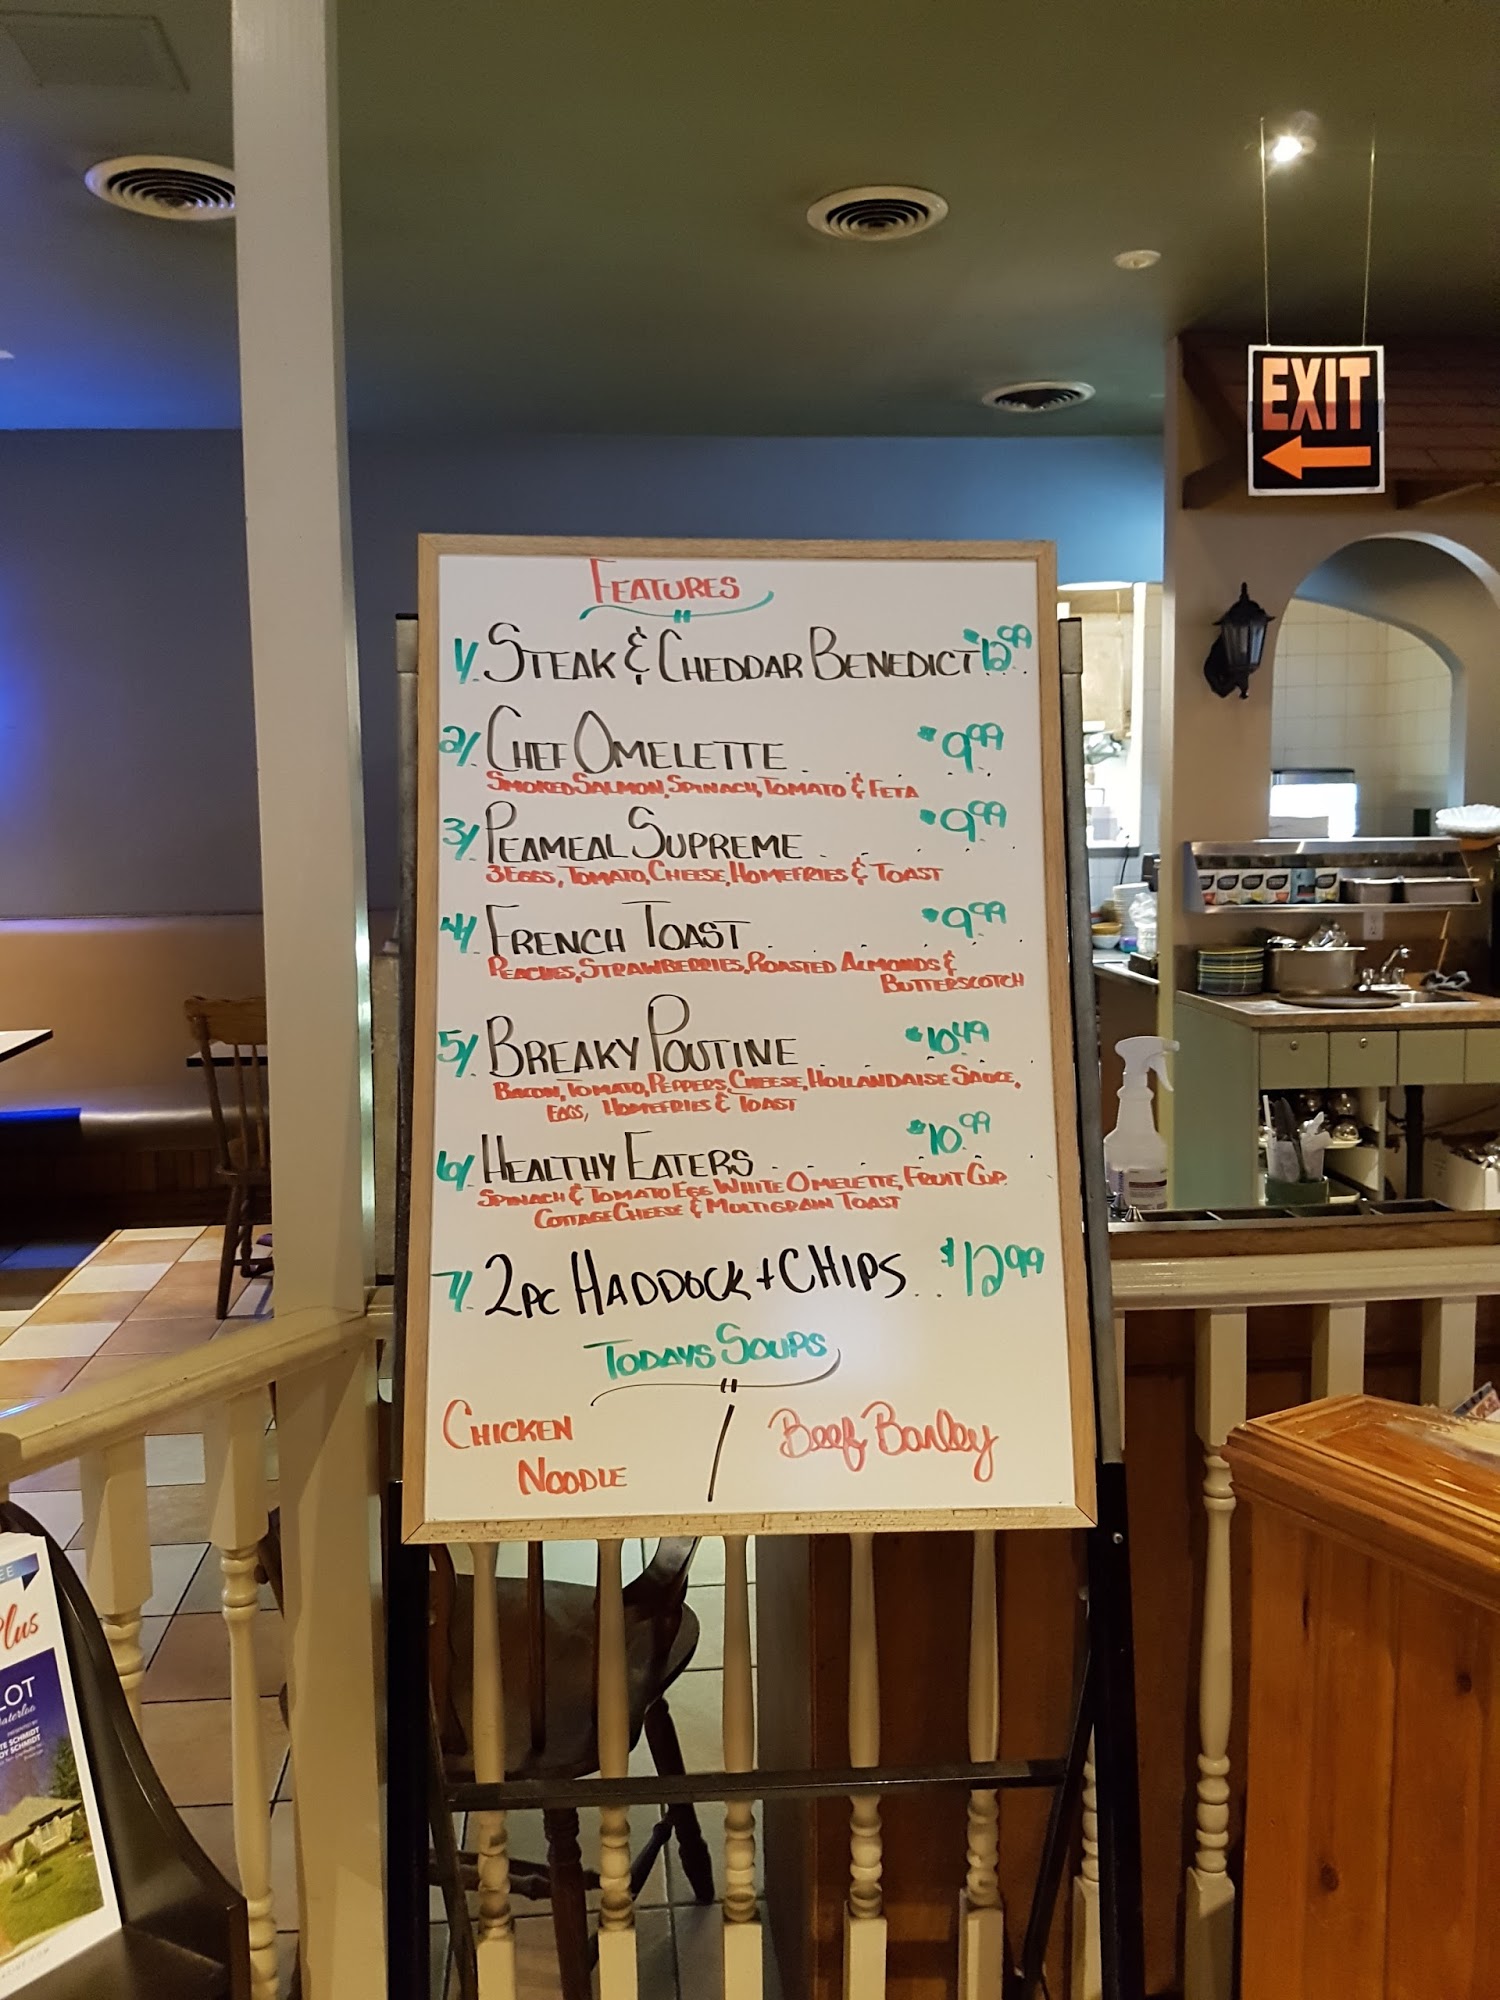 EXIT
FEATURES
1/. STEAK & CHEDDAR BENEDICT $12.99
2/. CHEF OMELETTE $9.99
SMOKED SALMON, SPINACH, TOMATO & FETA
3/. PEAMEAL SUPREME $9.99
3 EGGS, TOMATO, CHEESE, HOMEFRIES & TOAST
4/. FRENCH TOAST $9.99
PEACHES, STRAWBERRIES, ROASTED ALMONDS &
BUTTERSCOTCH
5/. BREAKY POUTINE $10.49
BACON, TOMATO, PEPPERS, CHEESE, HOLLANDAISE SAUCE,
EGGS, HOMEFRIES & TOAST
6/. HEALTHY EATERS $10.99
SPINACH & TOMATO EGG WHITE OMELETTE, FRUIT CUP.
COTTAGE CHEESE & MULTIGRAIN TOAST
7/. 2PC HADDOCK + CHIPS $12.99
TODAYS SOUPS
CHICKEN
NOODLE / Beef Barley
Plus
LOT